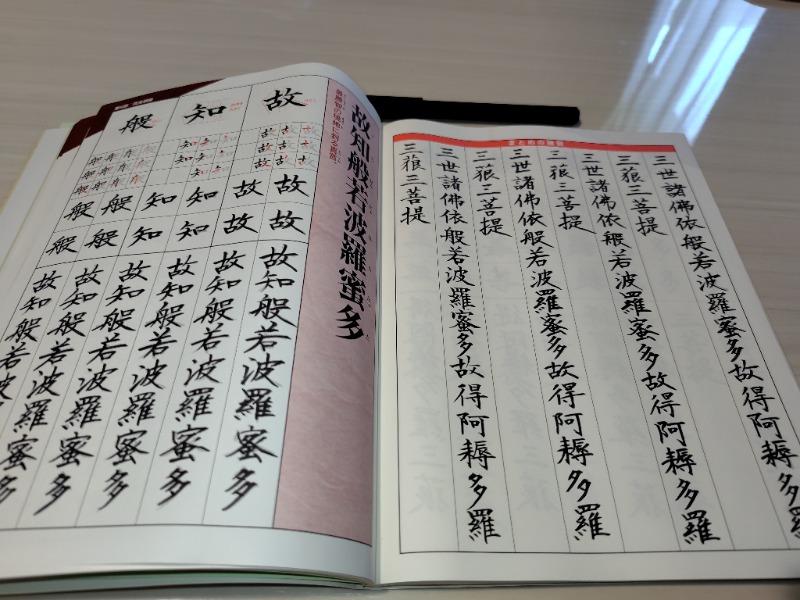 まとめの練習
三世諸佛依般若波羅蜜多故得阿耨多羅
三藐三菩提
三世諸佛依般若波羅蜜多故得阿耨多羅
三藐三菩提
三世諸佛依般若波羅蜜多故得阿耨多羅
三藐三菩提
三世諸佛依般若波羅蜜多故得阿耨多羅
三藐三菩提
故知般若波羅蜜多
故
故故故
故故
故故
知
知知
知知
知知
般
般般般
般般
般般
故知般若波羅蜜多
故知般若波羅蜜多
故知般若波羅蜜多
故知般若波羅蜜多
故知般若波羅蜜多